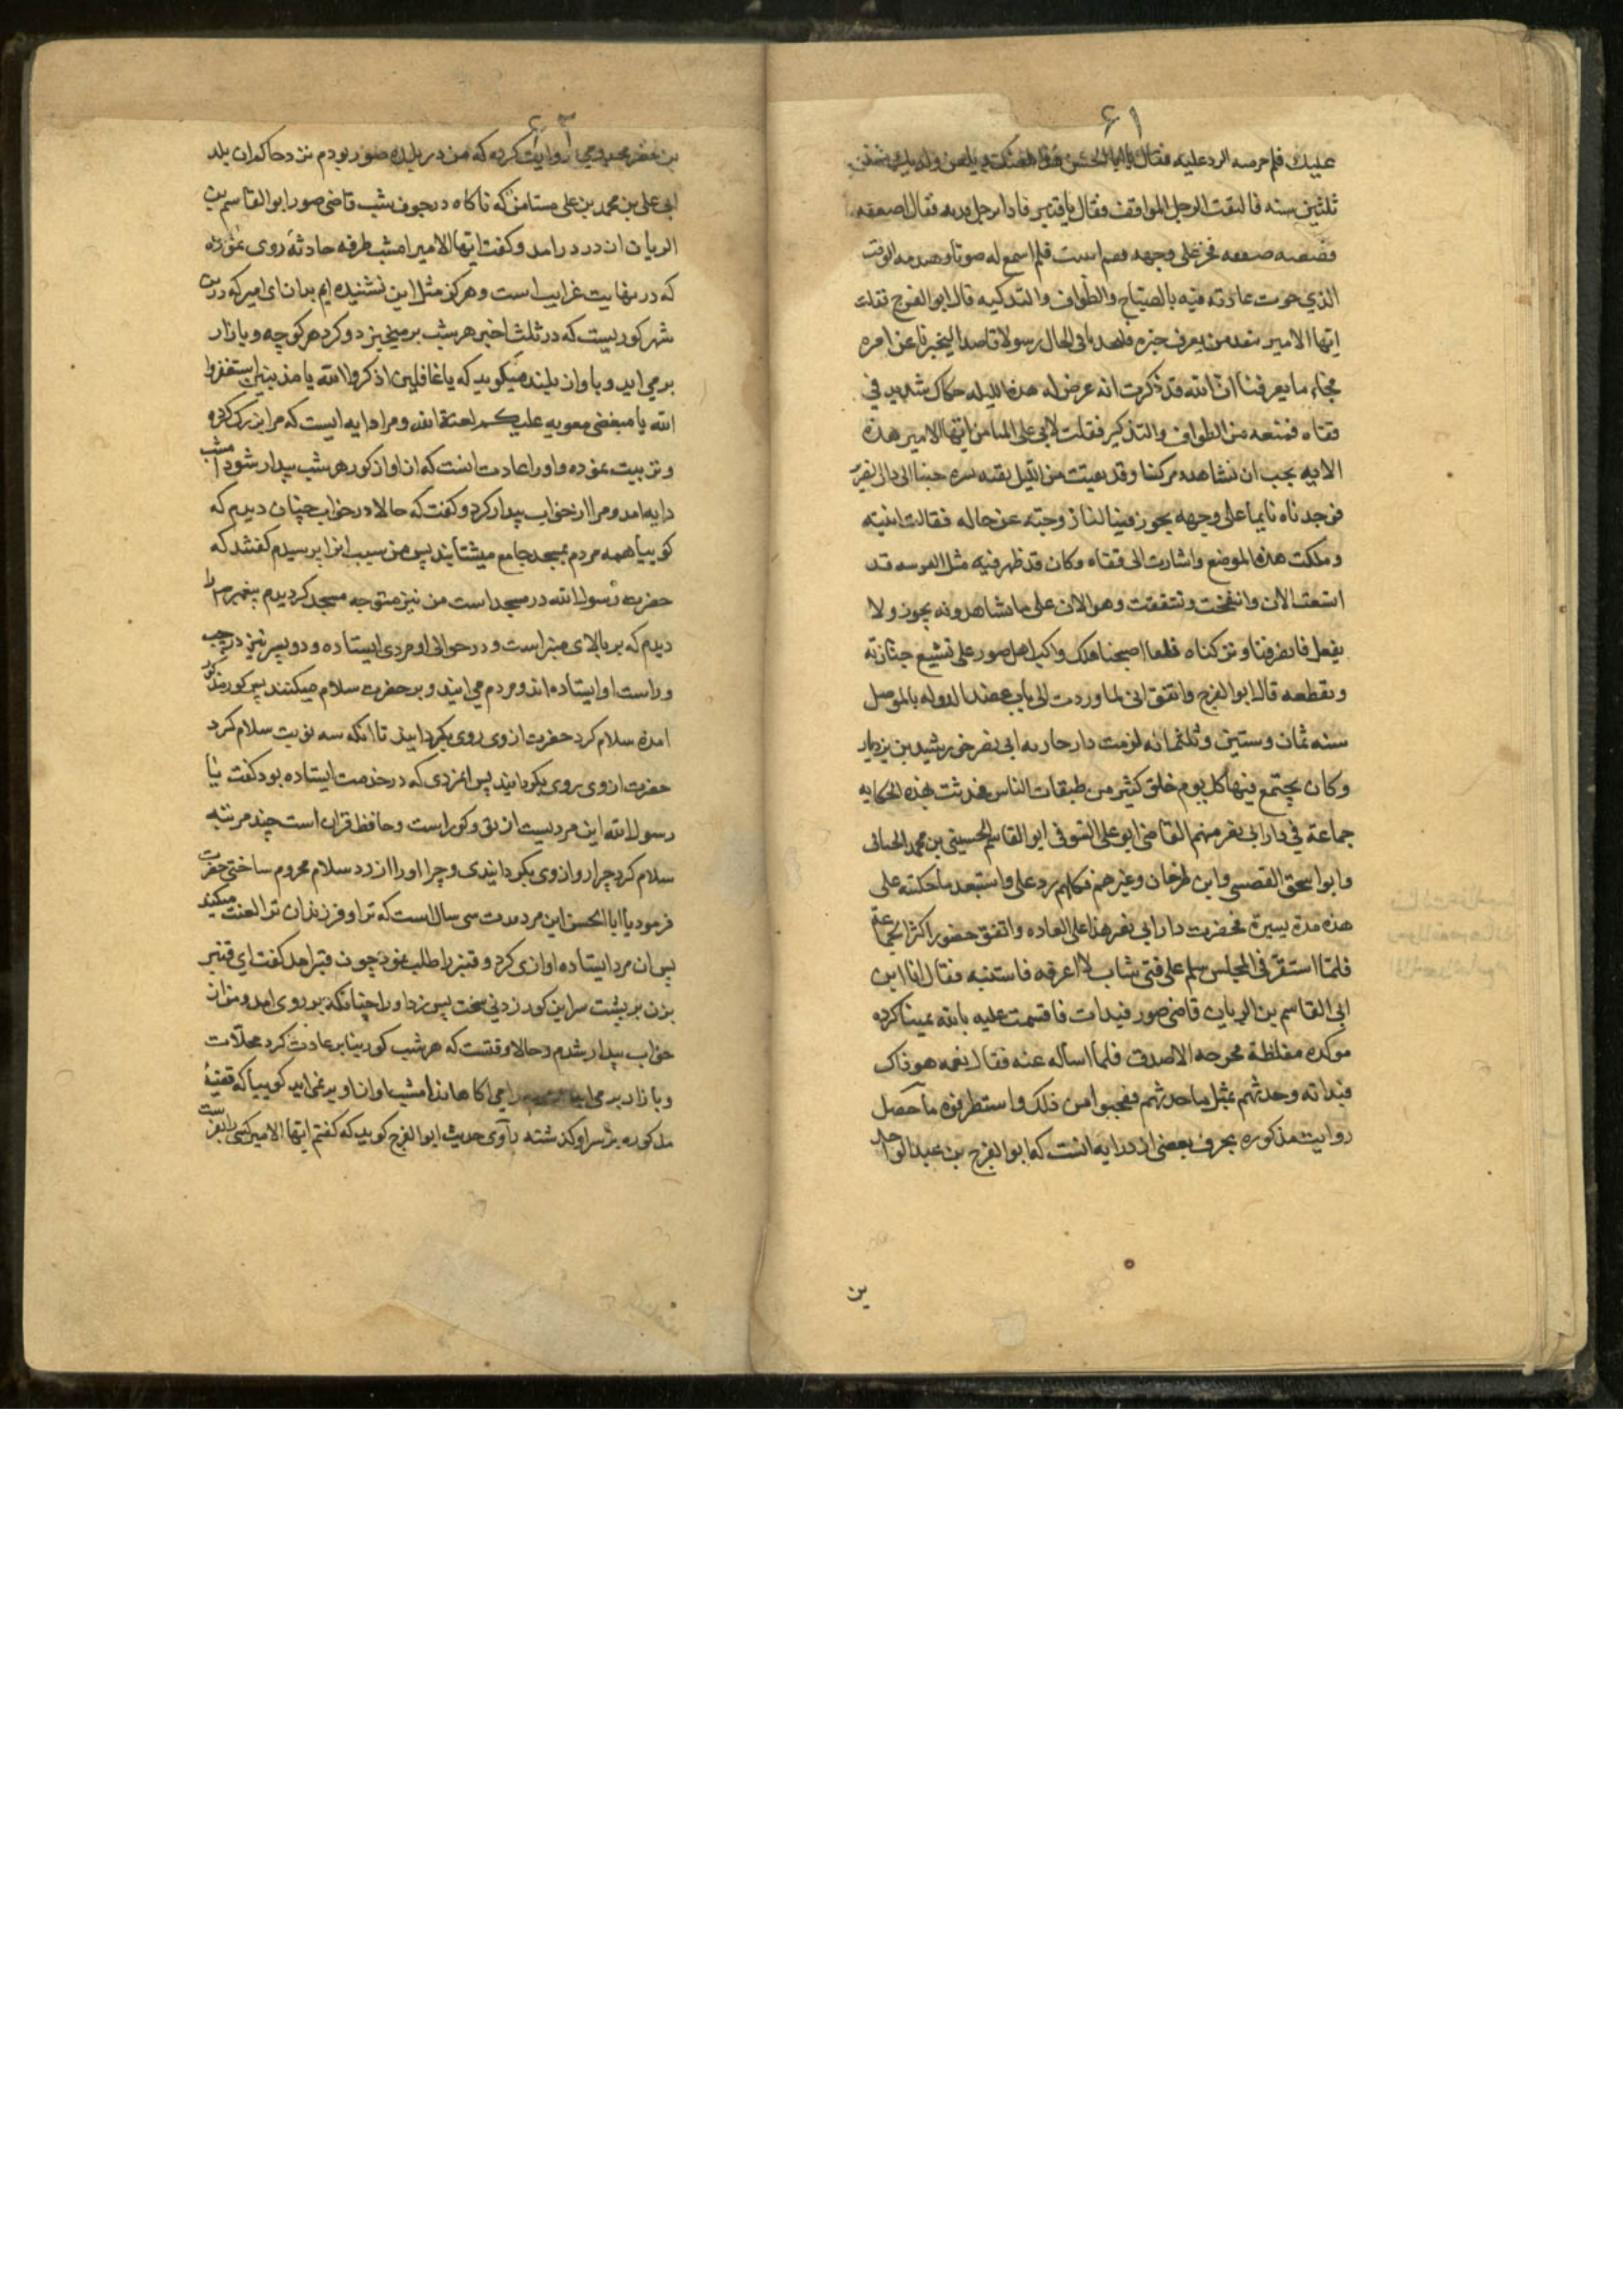 ۶۱
عليك فلم حرمه الرد عليه فقال يا ابا الحسن هذا يلعنك ويلعن ولديك منذ
ثلثين سنه فالتفت الرجل الواقف فقال يا قنبر فاذا برجل قد بدر فقال اصفعه
فصفعه صفعه فخر على وجهه فهم است فلم اسمع له صوتا وهذه الوقت
الذي جرت عادته فيه بالصياح والطواف والتذكير قال ابو الفرج فقلت
ايها الامير ننفد من يعرف خبره فانفدنا في الحال رسولا قاصدا ليخبرنا عن امره
فجاء ما يعرفنا ان امراته قد ذكرت انه عرض له هذه الليله حكاك شديد في
قفاه فمنعه من الطواف والتذكير فقلت لابي على المستامن ايها الامير هذه
الايه يجب ان نشاهده فركبنا وقد بقيت من الليل بقيه يسيره جئنا الى دار الضرير
فوجدناه نايما على وجهه يخور فسالنا زوجته عن حاله فقالت انتبه
وحكت هذه الموضع واشارت الى قفاه وكان قد ظهر فيه مثل العدسه قد
اتسعت الان وانتفخت وتشققت وهو الان على ما تشاهدونه يخور ولا
يعقل فانصرفنا وتركناه فلما اصبحنا هلك واكب اهل صور على تشييع جنازته
وتعظيمه قال ابو الفرج واتفق اني لما وردت الى باب عضد الدوله بالموصل
سنه ثمان وستين وثلثمائه لزمت دار خازنه ابي نصر خورشيد بن يزديار
وكان يجتمع فيها كل يوم خلق كثير من طبقات الناس فحدثت بهذه الحكايه
جماعة في دار ابي نصر منهم القاضى ابو على التنوخي ابو القاسم الحسين بن محمد الجناني
وابو اسحق النصيبي وابن طرخان وغيرهم فكلهم رد على واستبعد ما حكيته على
هذه مدة يسيرة فحضرت دار ابي نصر هذا على العاده واتفق حضور اكثر الجماعة
فلما استقر في المجلس سلم على فتى شاب لا اعرفه فاستثبته فقال انا ابن
ابي القاسم بن الريان قاضى صور فبدات فاقسمت عليه بالله يمينا كرره
موكده مغلظة محرجه الا صدق فلما اساله عنه فقال نعم هو ذاك
فبداته وحدثهم بمثل ما حدثتهم فعجبوا من ذلك واستطرفوه ما حصل
روايت مذكوره بحرف بعضى از درايه انست كه ابو الفرج بن عبد الواحد
بن
۶۲
بن نصر مخزومي روايت كرده كه من در بلده صور بودم نزد حاكم ان بلد
ابى على بن محمد بن على مستامن كه ناكاه در جوف شب قاضى صور ابو القاسم بن
الريان ان در درامد وكفت ايها الامير امشب طرفه حادثۀ روى نموده
كه در نهايت غرايب است وهركز مثل اين نشنيده ايم بدان اى امير كه درين
شهر كوريست كه در ثلث اخير هر شب بر ميخيزد وكرد هر كوچه وبازار
برمى ايد وباواز بلند ميكويد كه يا غافلين اذكروا الله يا مذنبين استغفروا
الله يا مبغضى معويه عليكم لعنة الله ومرا دايه ايست كه مرا بزرك كرده
وتربيت نموده واورا عادت انست كه از اواز كور هر شب بيدار شود امشب
دايه امد ومرا از خواب بيدار كرد وكفت كه حالا در خواب چنان ديدم كه
كوييا همه مردم بمسجد جامع ميشتابند پس من سبب انرا پرسيدم كفتند كه
حضرت رسول الله در مسجد است من نيز متوجه مسجد كرديدم پيغمبر را
ديدم كه بر بالاى منبر است ودر حوالى او مردى ايستاده ودو پسر نيز در چپ
وراست او ايستاده اند ومردم مى ايند وبر حضرت سلام ميكنند پس كور مذكور
امده سلام كرد حضرت از وى روى بكردانيد تا انكه سه نوبت سلام كرد
حضرت از وى روى بكردانيد پس انمردى كه در خدمت ايستاده بود كفت يا
رسول الله اين مرديست از تو وكور است وحافظ قران است چند مرتبه
سلام كرد چرا رو از وى بكردانيدى وچرا اورا از رد سلام محروم ساختى حضرت
فرمود يا ابا الحسن اين مرد مدت سى سال است كه ترا وفرزندان ترا لعنت ميكند
پس ان مرد ايستاده اوازى كرد وقنبر را طلب نمود چون قنبر امد كفت اى قنبر
بزن بر پشت سر اين كور زدنى سخت پس زد اورا چنانكه بر روى امد ومن از
خواب بيدار شدم وحالا وقتست كه هر شب كور بنابر عادت كرد محلات
وبازار بر مى ايد اكاهاند امشب اواز او بر نمى ايد كوييا كه قضيۀ
مذكوره بر سر او كذشته راوى حديث ابو الفرج كويد كه كفتم ايها الامير كسى را بفرست